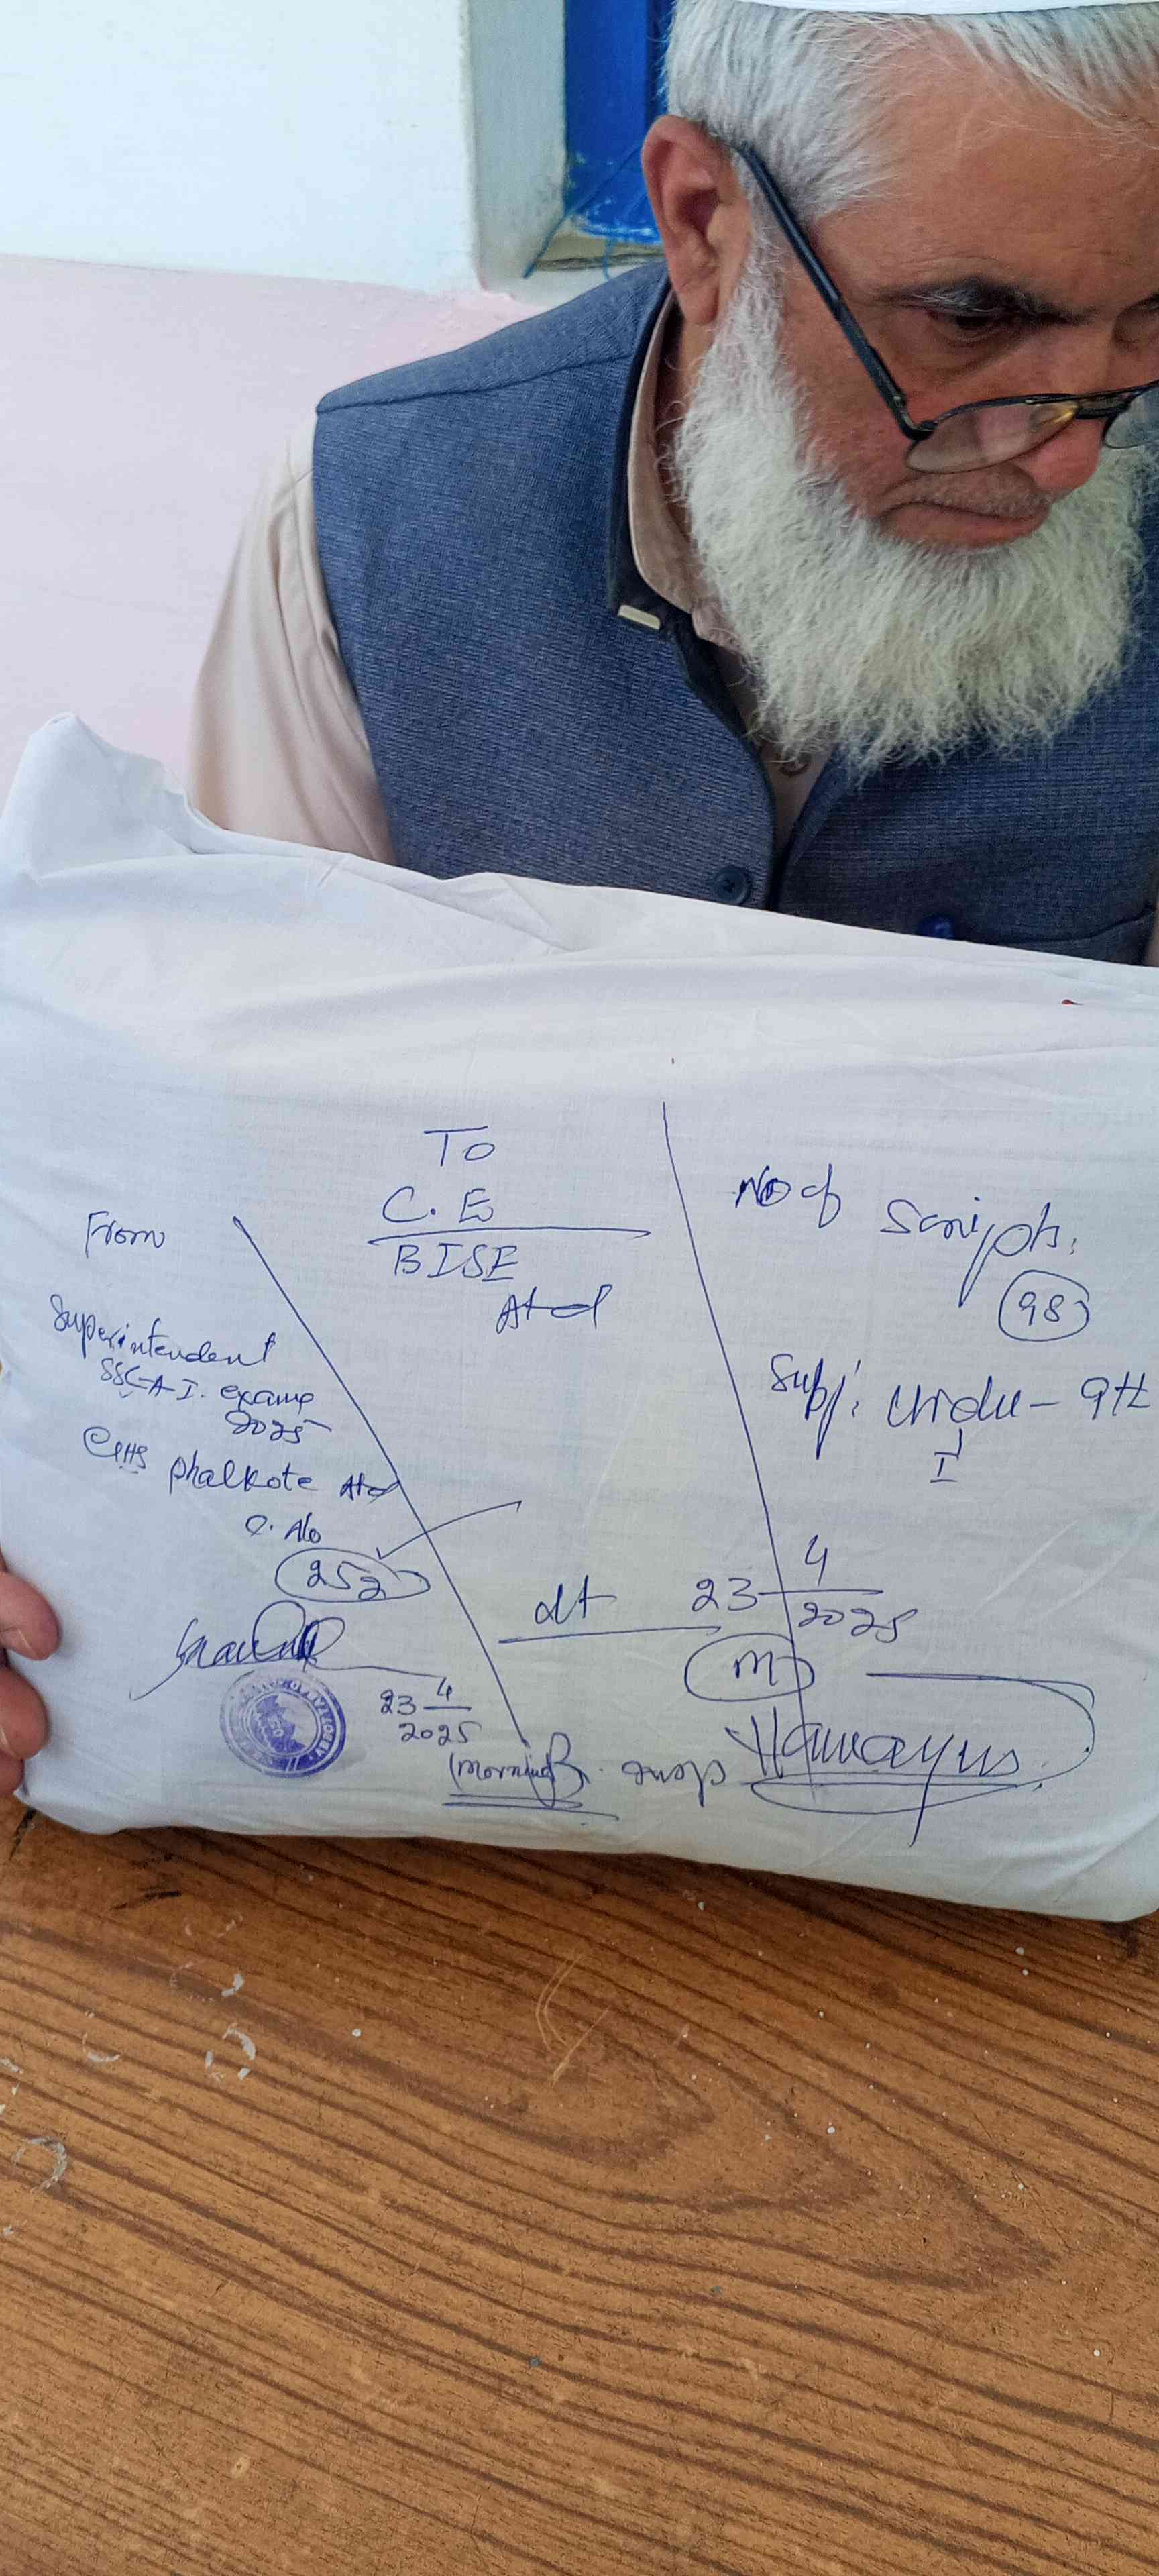 To
C. E
BISE
Atd
From
Superintendent
SSC-A-I. exams
2025
GHS phalkote Atd
C. No
252
23 4/2025
(Morning)
No of Scripts.
98
Subj: Urdu - 9th
I
dt 23-4/2025
M
Hamayus